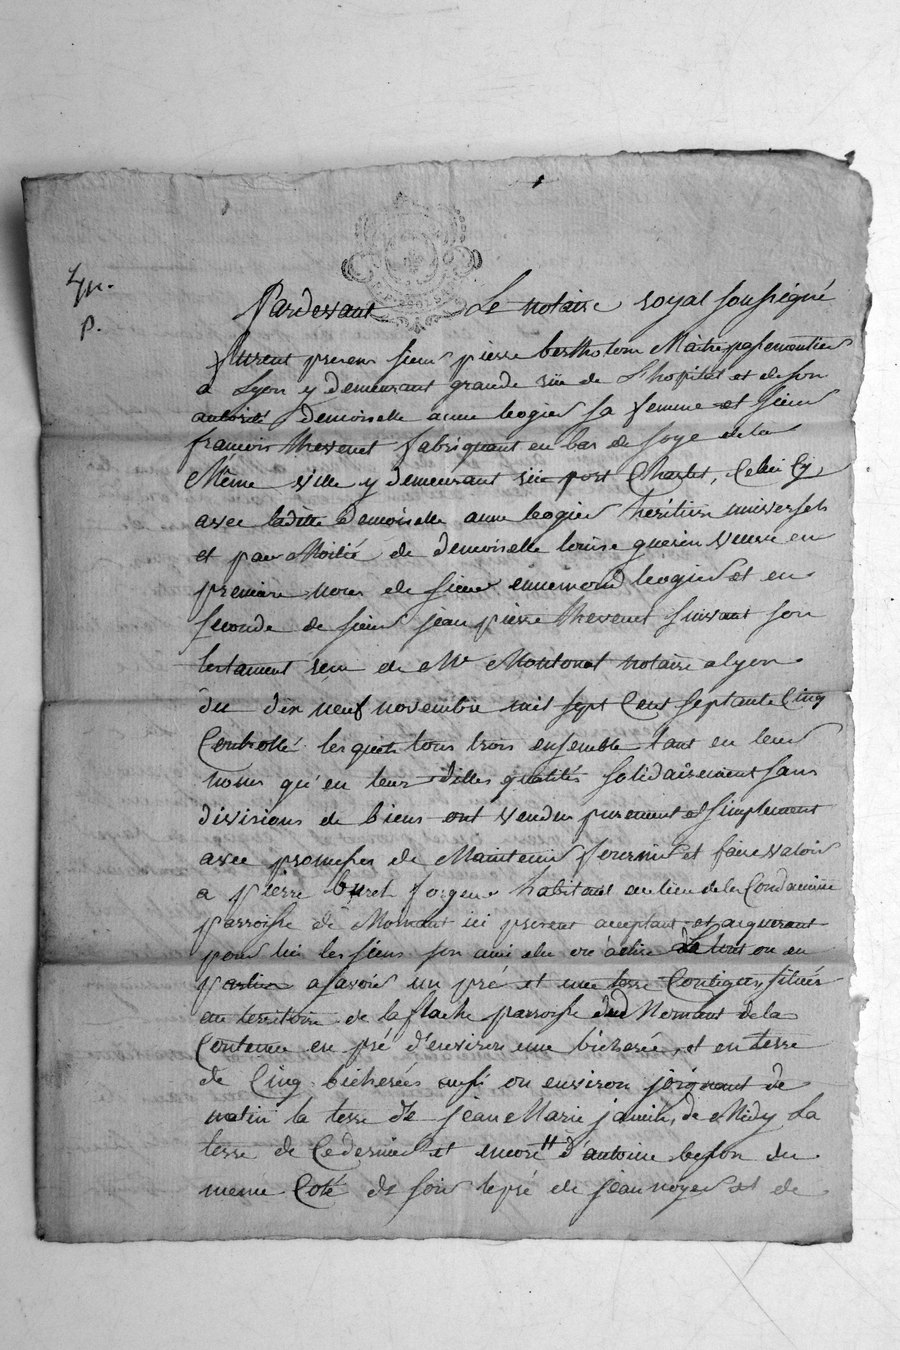 Pardevant Le notaire royal soussigné
furent presens sieur pierre bertholon Maitre passementier
a Lyon y demeurant grande rüe de L'hopital et de son
autorité demoiselle anne leogier sa femme et sieur
francois thevenet fabriquant en bas de soye de la
Même ville y demeurant rüe port Charlet, Celui Cy
avec laditte demoiselle anne leogier heritiers universels
et par Moitié de demoiselle louise guerin veuve en
premiere noces de sieur ennemond leogier et en
seconde de sieur jean pierre thevenet suivant son
testament reçu de Me Montonat notaire a lyon
du dix neuf novembre mil sept Cent septante Cinq
Controllé lesquels tous trois ensemble tant en leurs
noms qu'en leur dittes qualités solidairement sans
divisions de biens ont vendu purement et simplement
avec promesses de Maintenir fournir et faire valoir
a pierre buret forgeur habitant au lieu de la Condamine
parroisse de Mornant ici present acceptant et acquerant
pour lui les siens son ami elu ou a elire de tout ou en
partie a savoir un pré et une terre Contigus situés
au territoire de la flache parroisse dud Mornant de la
Contenue en pré d'environ une bicherée, et en terre
de Cinq bicherées aussi ou environ joignant de
matin la terre de jean Marie janin, de Midy La
terre de Ce dernier et encore d'antoine besson du
meme Coté de soir le pré de jean noyer et de